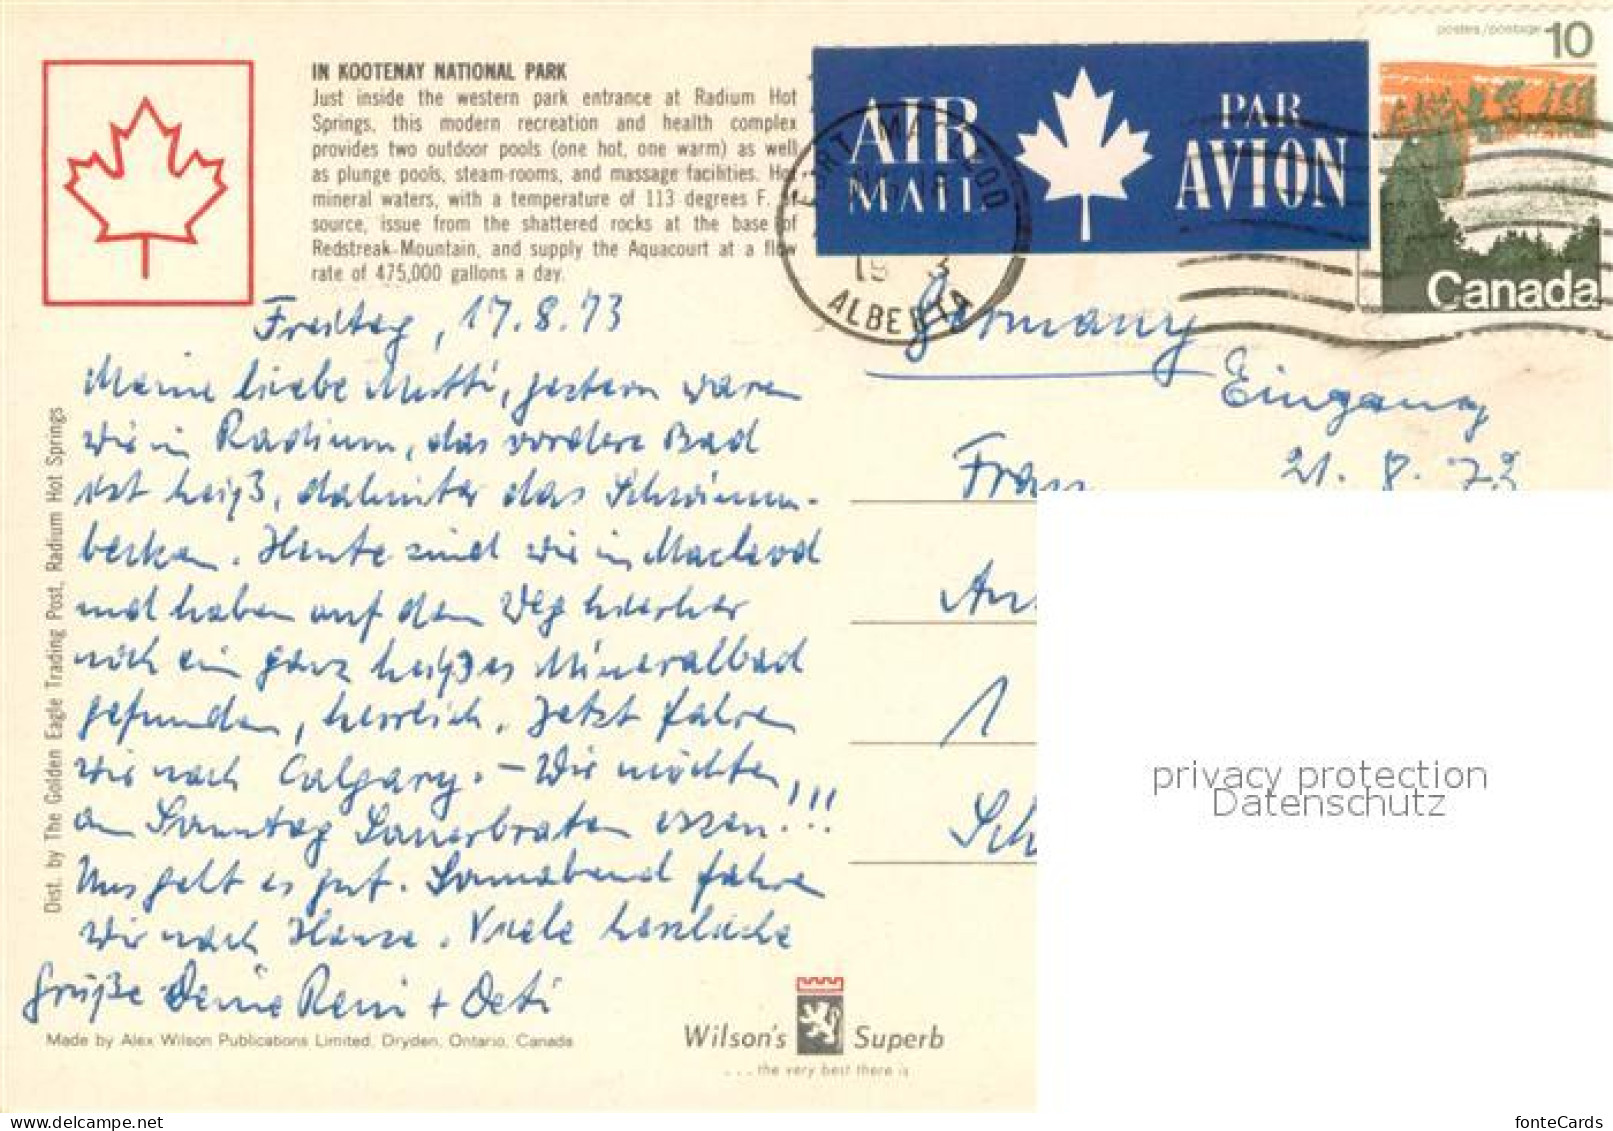 IN KOOTENAY NATIONAL PARK
Just inside the western park entrance at Radium Hot
Springs, this modern recreation and health complex
provides two outdoor pools (one hot, one warm) as well
as plunge pools, steam-rooms, and massage facilities. Hot
mineral waters, with a temperature of 113 degrees F. at
source, issue from the shattered rocks at the base of
Redstreak-Mountain, and supply the Aquacourt at a flow
rate of 475,000 gallons a day.
AIR MAIL
PAR AVION
postes/postage 10
Canada
FORT MACLEOD
ALBERTA
Freitag, 17.8.73
Meine liebe Mutti, gestern waren
wir in Radium, das vordere Bad
ist heiß, dahinter das Schwimm-
becken. Heute sind wir in Macleod
und haben auf dem Weg hierher
noch ein ganz heißes Mineralbad
gefunden, herrlich. Jetzt fahren
wir nach Calgary. – Wir möchten
am Sonntag Sauerbraten essen!!!
Uns geht es gut. Sonnabend fahren
wir nach Hause. Viele herzliche
Grüße Deine Reni + Oeti
Germany
Eingang
21. 8. 73
Frau
An
1
Sch
Dist. by The Golden Eagle Trading Post, Radium Hot Springs
Made by Alex Wilson Publications Limited, Dryden, Ontario, Canada
Wilson's Superb
...the very best there is
privacy protection
Datenschutz
delcampe.net
fonteCards